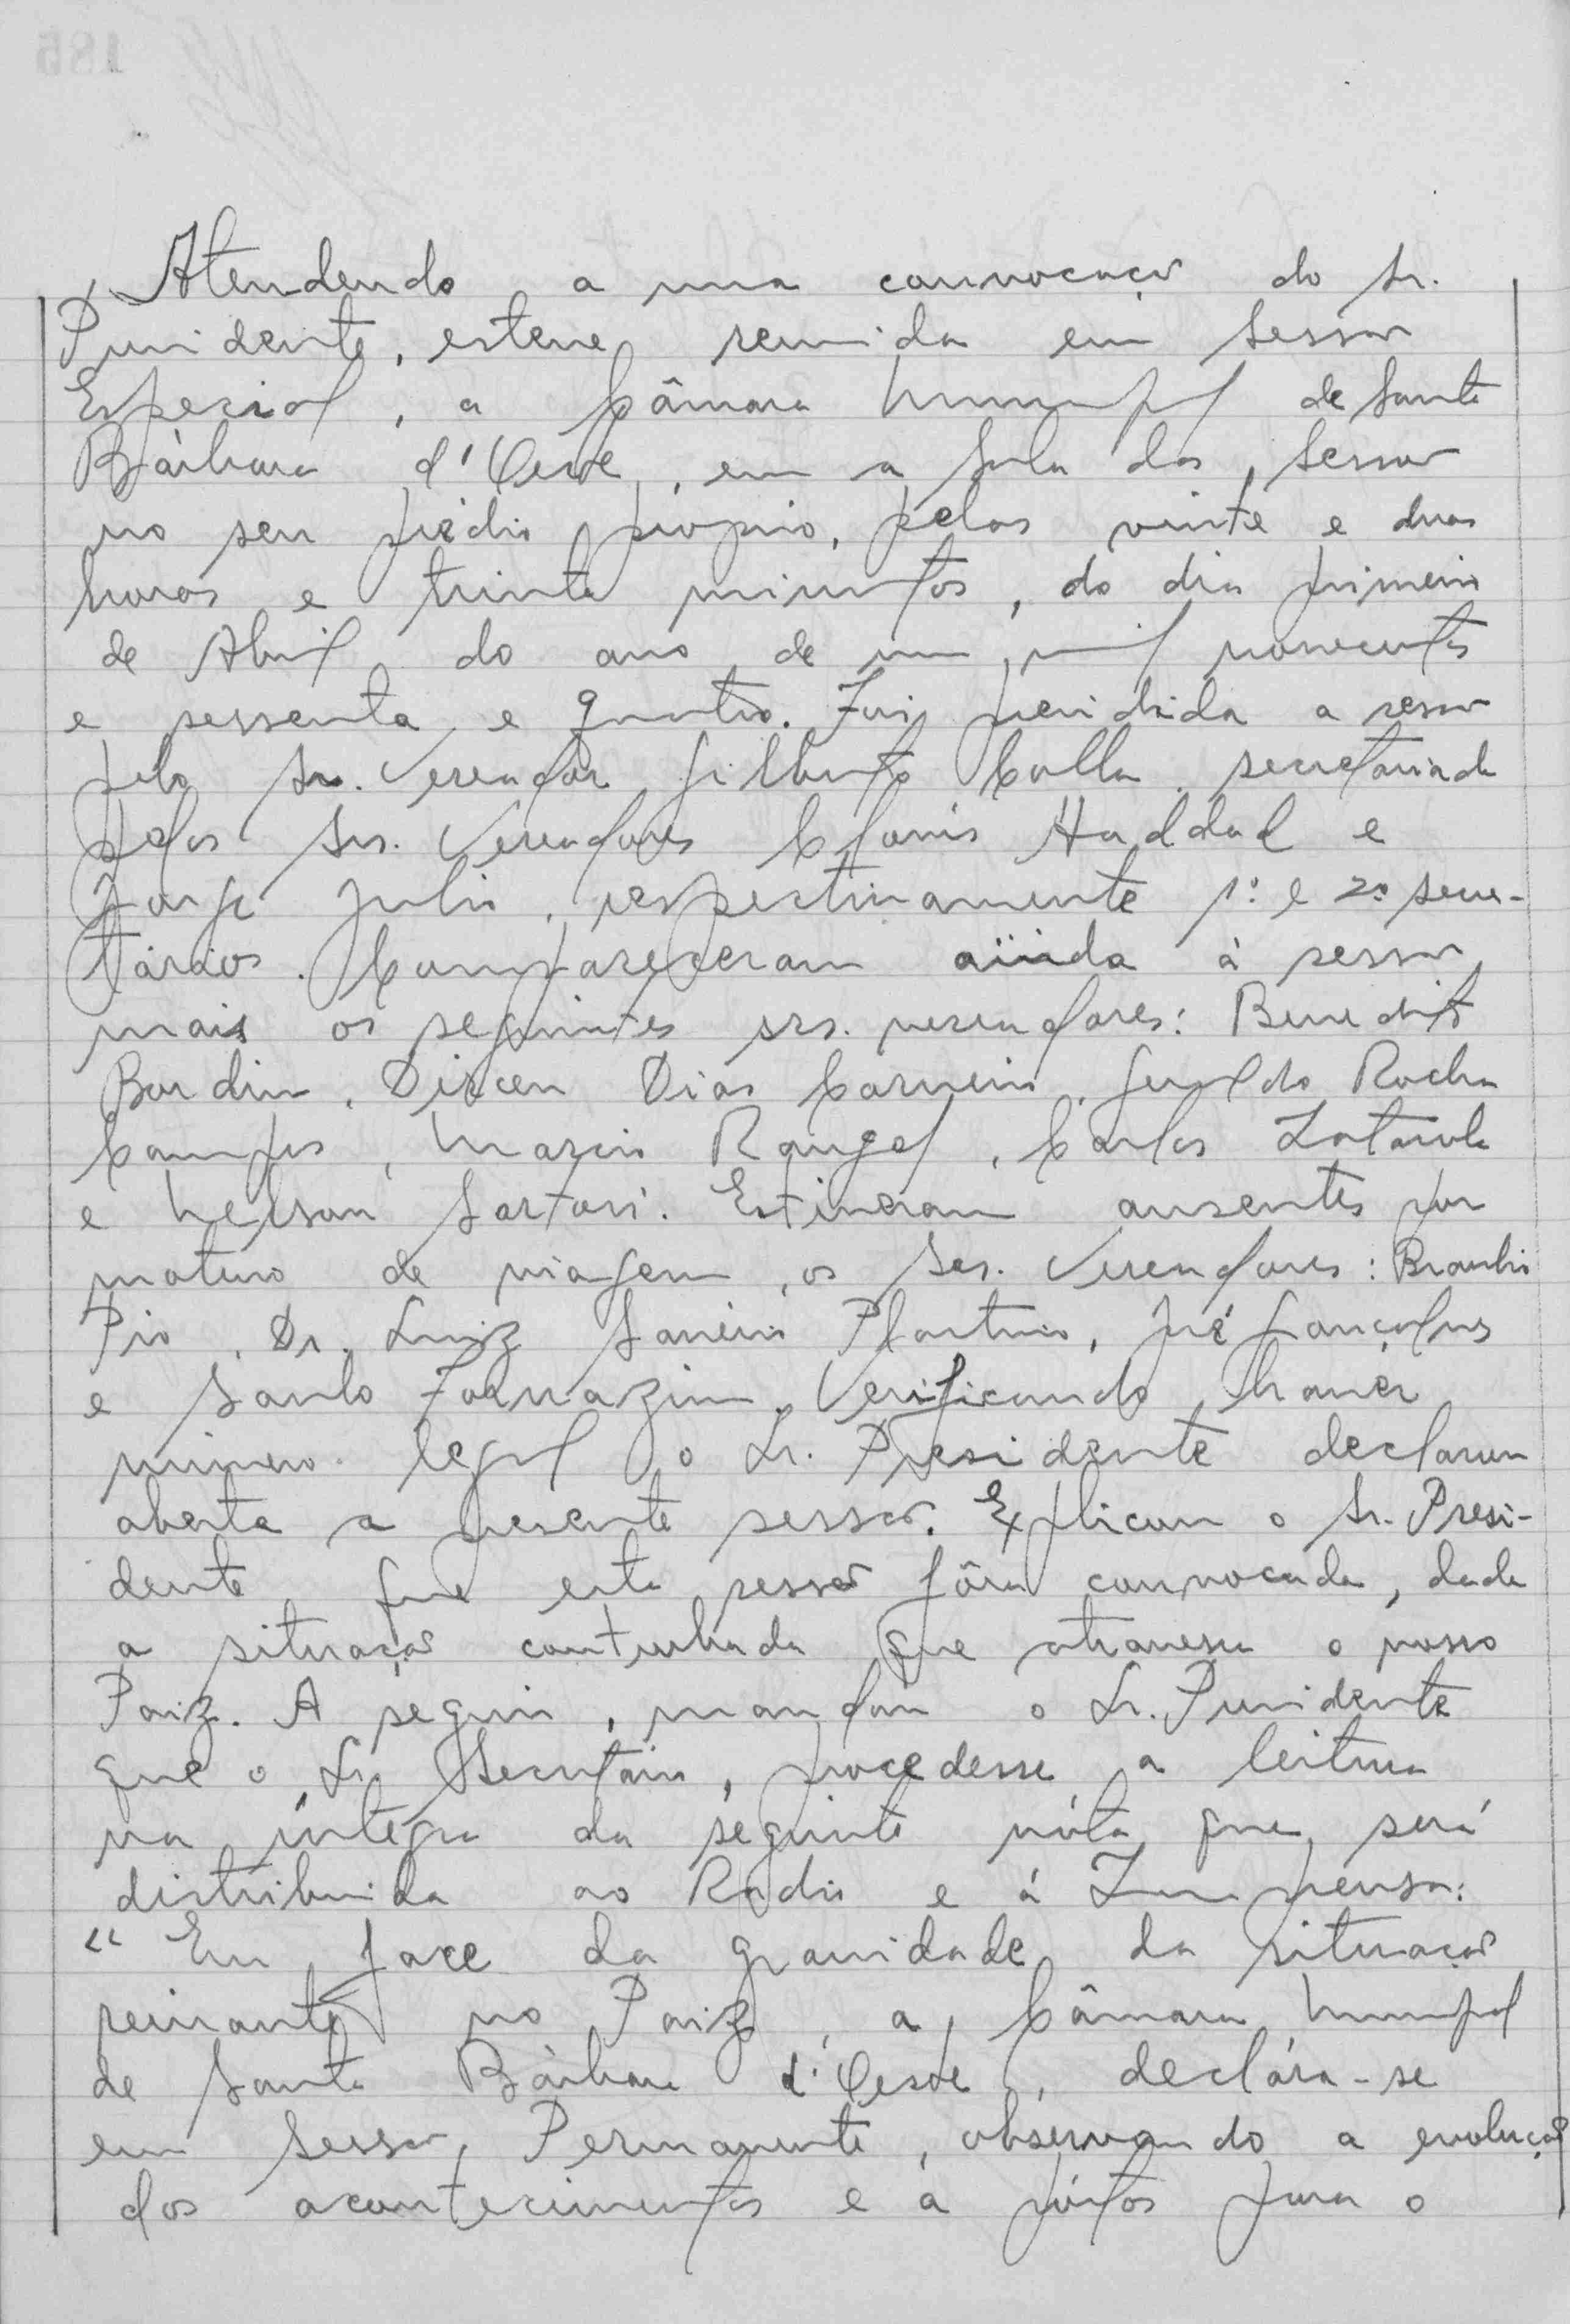 Atendendo a uma convocação do Sr.
Presidente, esteve reunida em Sessão
Especial, a Câmara Municipal de Santa
Bárbara d'Oeste, em a Sala das Sessões
no seu prédio próprio, pelas vinte e duas
horas e trinta minutos, do dia primeiro
de Abril do ano de um mil novecentos
e sessenta e quatro. Foi presidida a sessão
pelo Sr. Vereador Gilberto Colla secretariada
pelos Srs. Vereadores Clovis Haddad e
Jorge Julio, respectivamente 1º e 2º secre-
tários. Compareceram ainda à sessão
mais os seguintes srs. vereadores: Benedito
Bordim, Dirceu Dias Carneiro, Geraldo Rocha
Campos, Mario Rangel, Carlos
e Nelson Sartori. Estiveram ausentes por
motivo de viagem, os Srs. Vereadores: Braulio
Pio, Dr. Luiz José Gonçalves
e Santo Fornazim. Verificando haver
número legal o Sr. Presidente declarou
aberta a presente sessão. Explicou o Sr. Presi-
dente que esta sessão fôra convocada, dada
a situação conturbada que atravessa o nosso
Paiz. A seguir, mandou o Sr. Presidente
que o Sr. Secretário, procedesse a leitura
na íntegra da seguinte nóta que será
distribuida ao Radio e á Imprensa:
“ Em face da gravidade da situação
reinante no Paiz, a Câmara Municipal
de Santa Bárbara d'Oeste, declára-se
em Sessão Permanente, observando a evolução
dos acontecimentos e á póstos para o